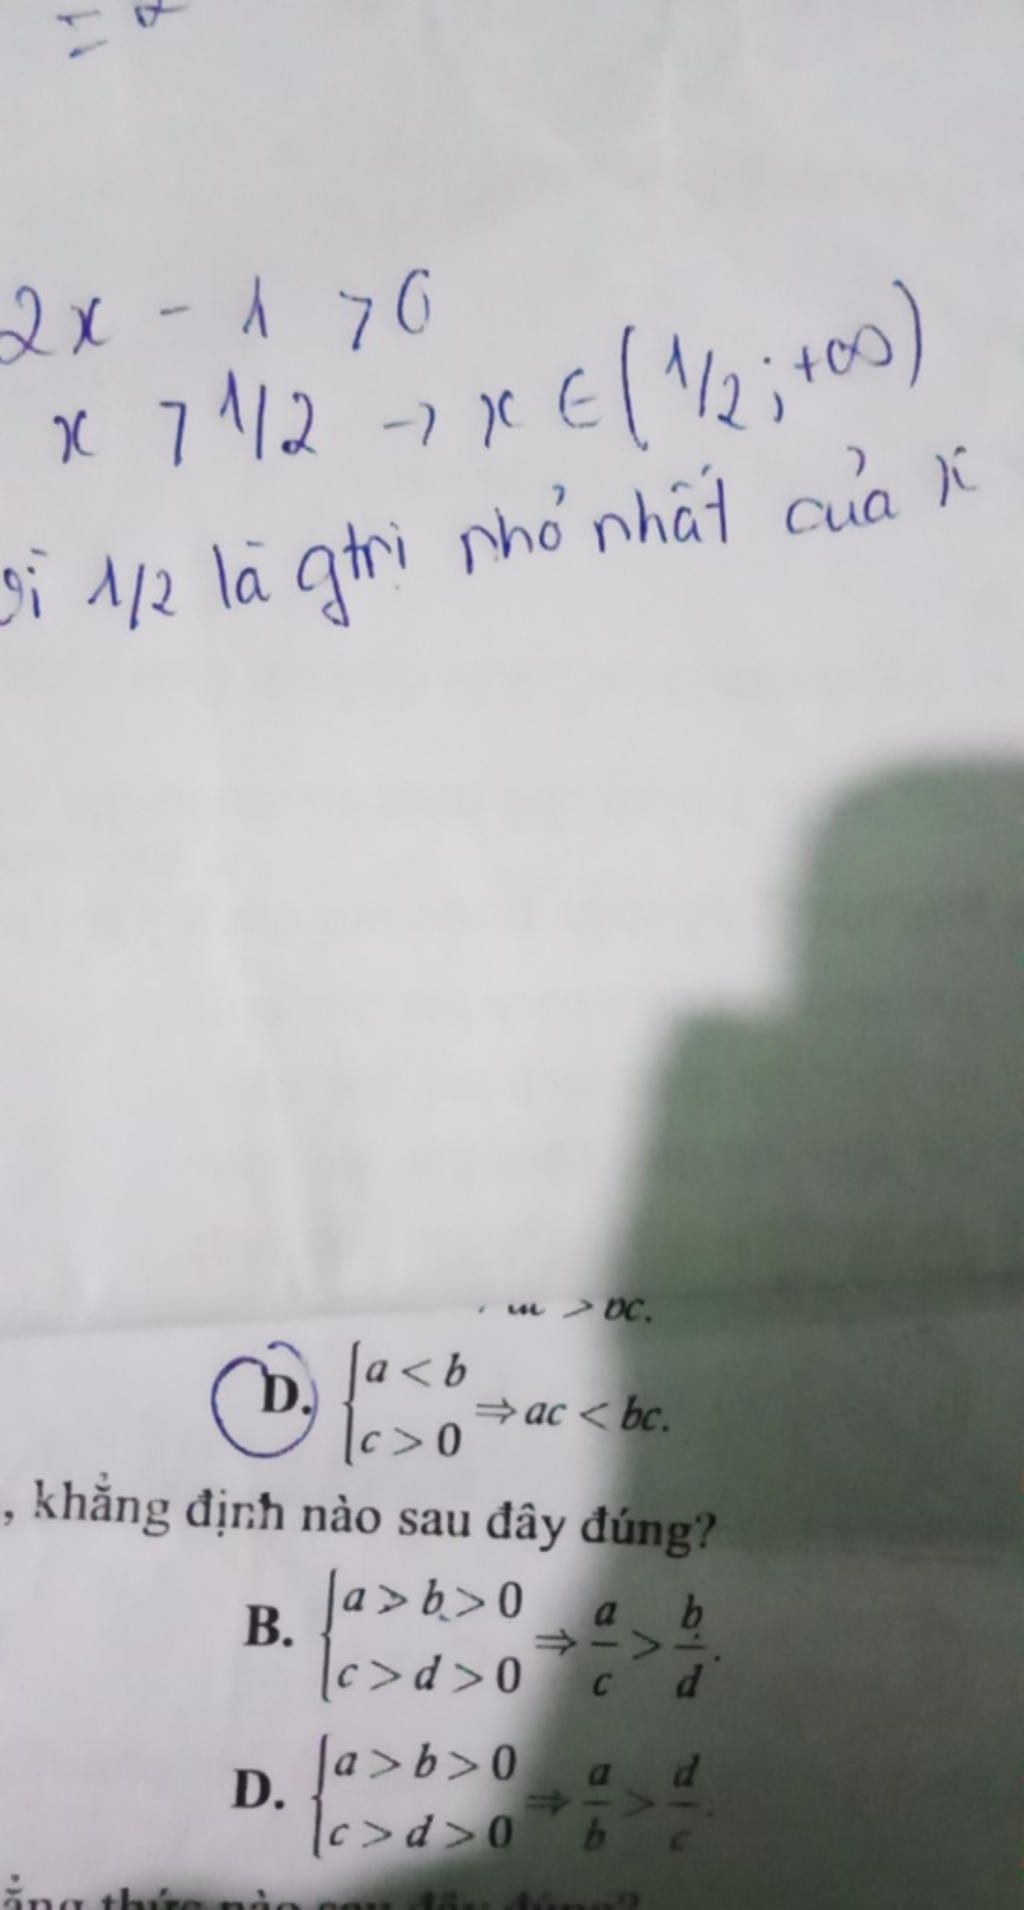 2x - 1 > 0
x > 1/2 → x ∈ (1/2; +∞)
1/2 là gtrị nhỏ nhất của x
> bc.
D. { a < b
c > 0 ⇒ ac < bc.
, khẳng định nào sau đây đúng?
B. { a > b > 0
c > d > 0 ⇒ a/c > b/d.
D. { a > b > 0
c > d > 0 ⇒ a/b > d/c.
thức nào sau đây đúng?